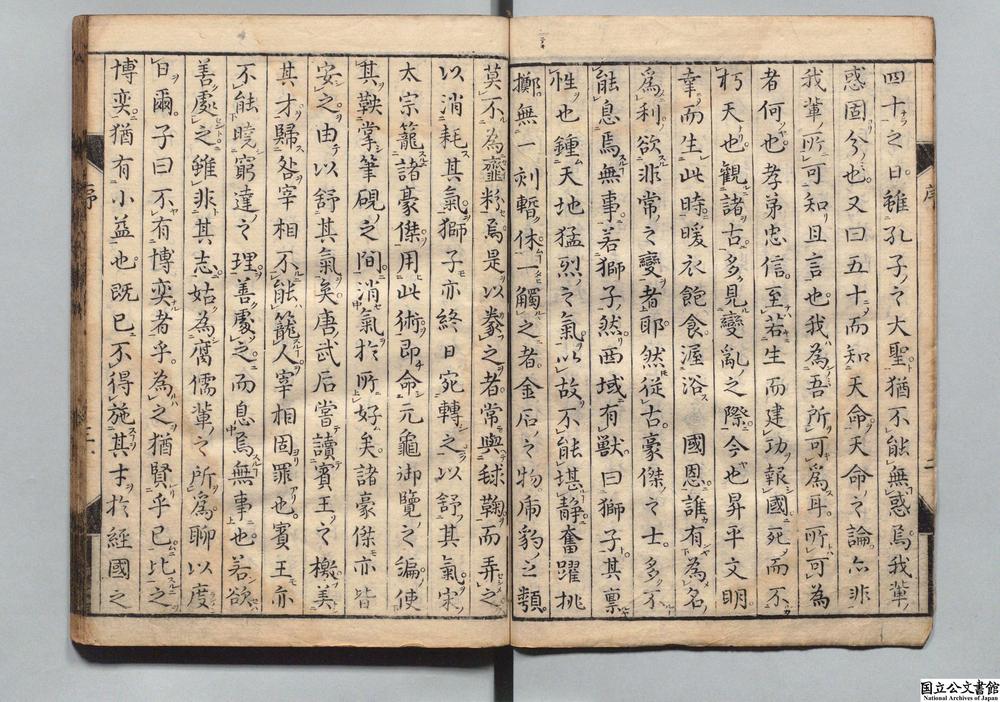 四十之日雖孔子之大聖猶不能無惑焉我輩
惑固分也又曰五十而知天命天命之論亦非
我輩所可知且言也我為吾所可為耳所可為
者何也孝弟忠信至若生而建功報國死而不
朽天也觀諸古多見變亂之際今也昇平文明
幸而生此時暖衣飽食渥浴 國恩誰有為名
為利欲非常之變者耶然從古豪傑之士多不
能息焉無事若獅子然西域有獸曰獅子其稟
性也鍾天地猛烈之氣以故不能堪靜奮躍挑
擲無一刻暫休一觸之者金石之物虎豹之類
莫不為齏粉焉是以豢之者常與毬鞠而弄之
以消耗其氣獅子亦終日宛轉之以舒其氣宋
太宗籠諸豪傑用此術即命元龜御覽之編使
其鞅掌筆硯之間消氣於所好矣諸豪傑亦皆
安之由以舒其氣矣唐武后嘗讀賓王之檄美
其才歸咎宰相不能籠人宰相固罪也賓王亦
不能曉窮達之理善處之而息焉無事也若欲
善處之雖非其志姑為腐儒輩之所為聊以度
日爾子曰不有博奕者乎為之猶賢乎已比之
博奕猶有小益也既已不得施其才於經國之
序
二
序
三
国立公文書館
National Archives of Japan